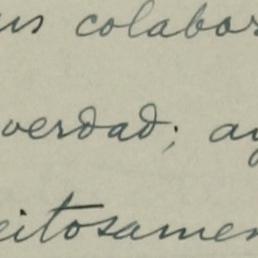 us colabor
verdad; ay
eitosamen